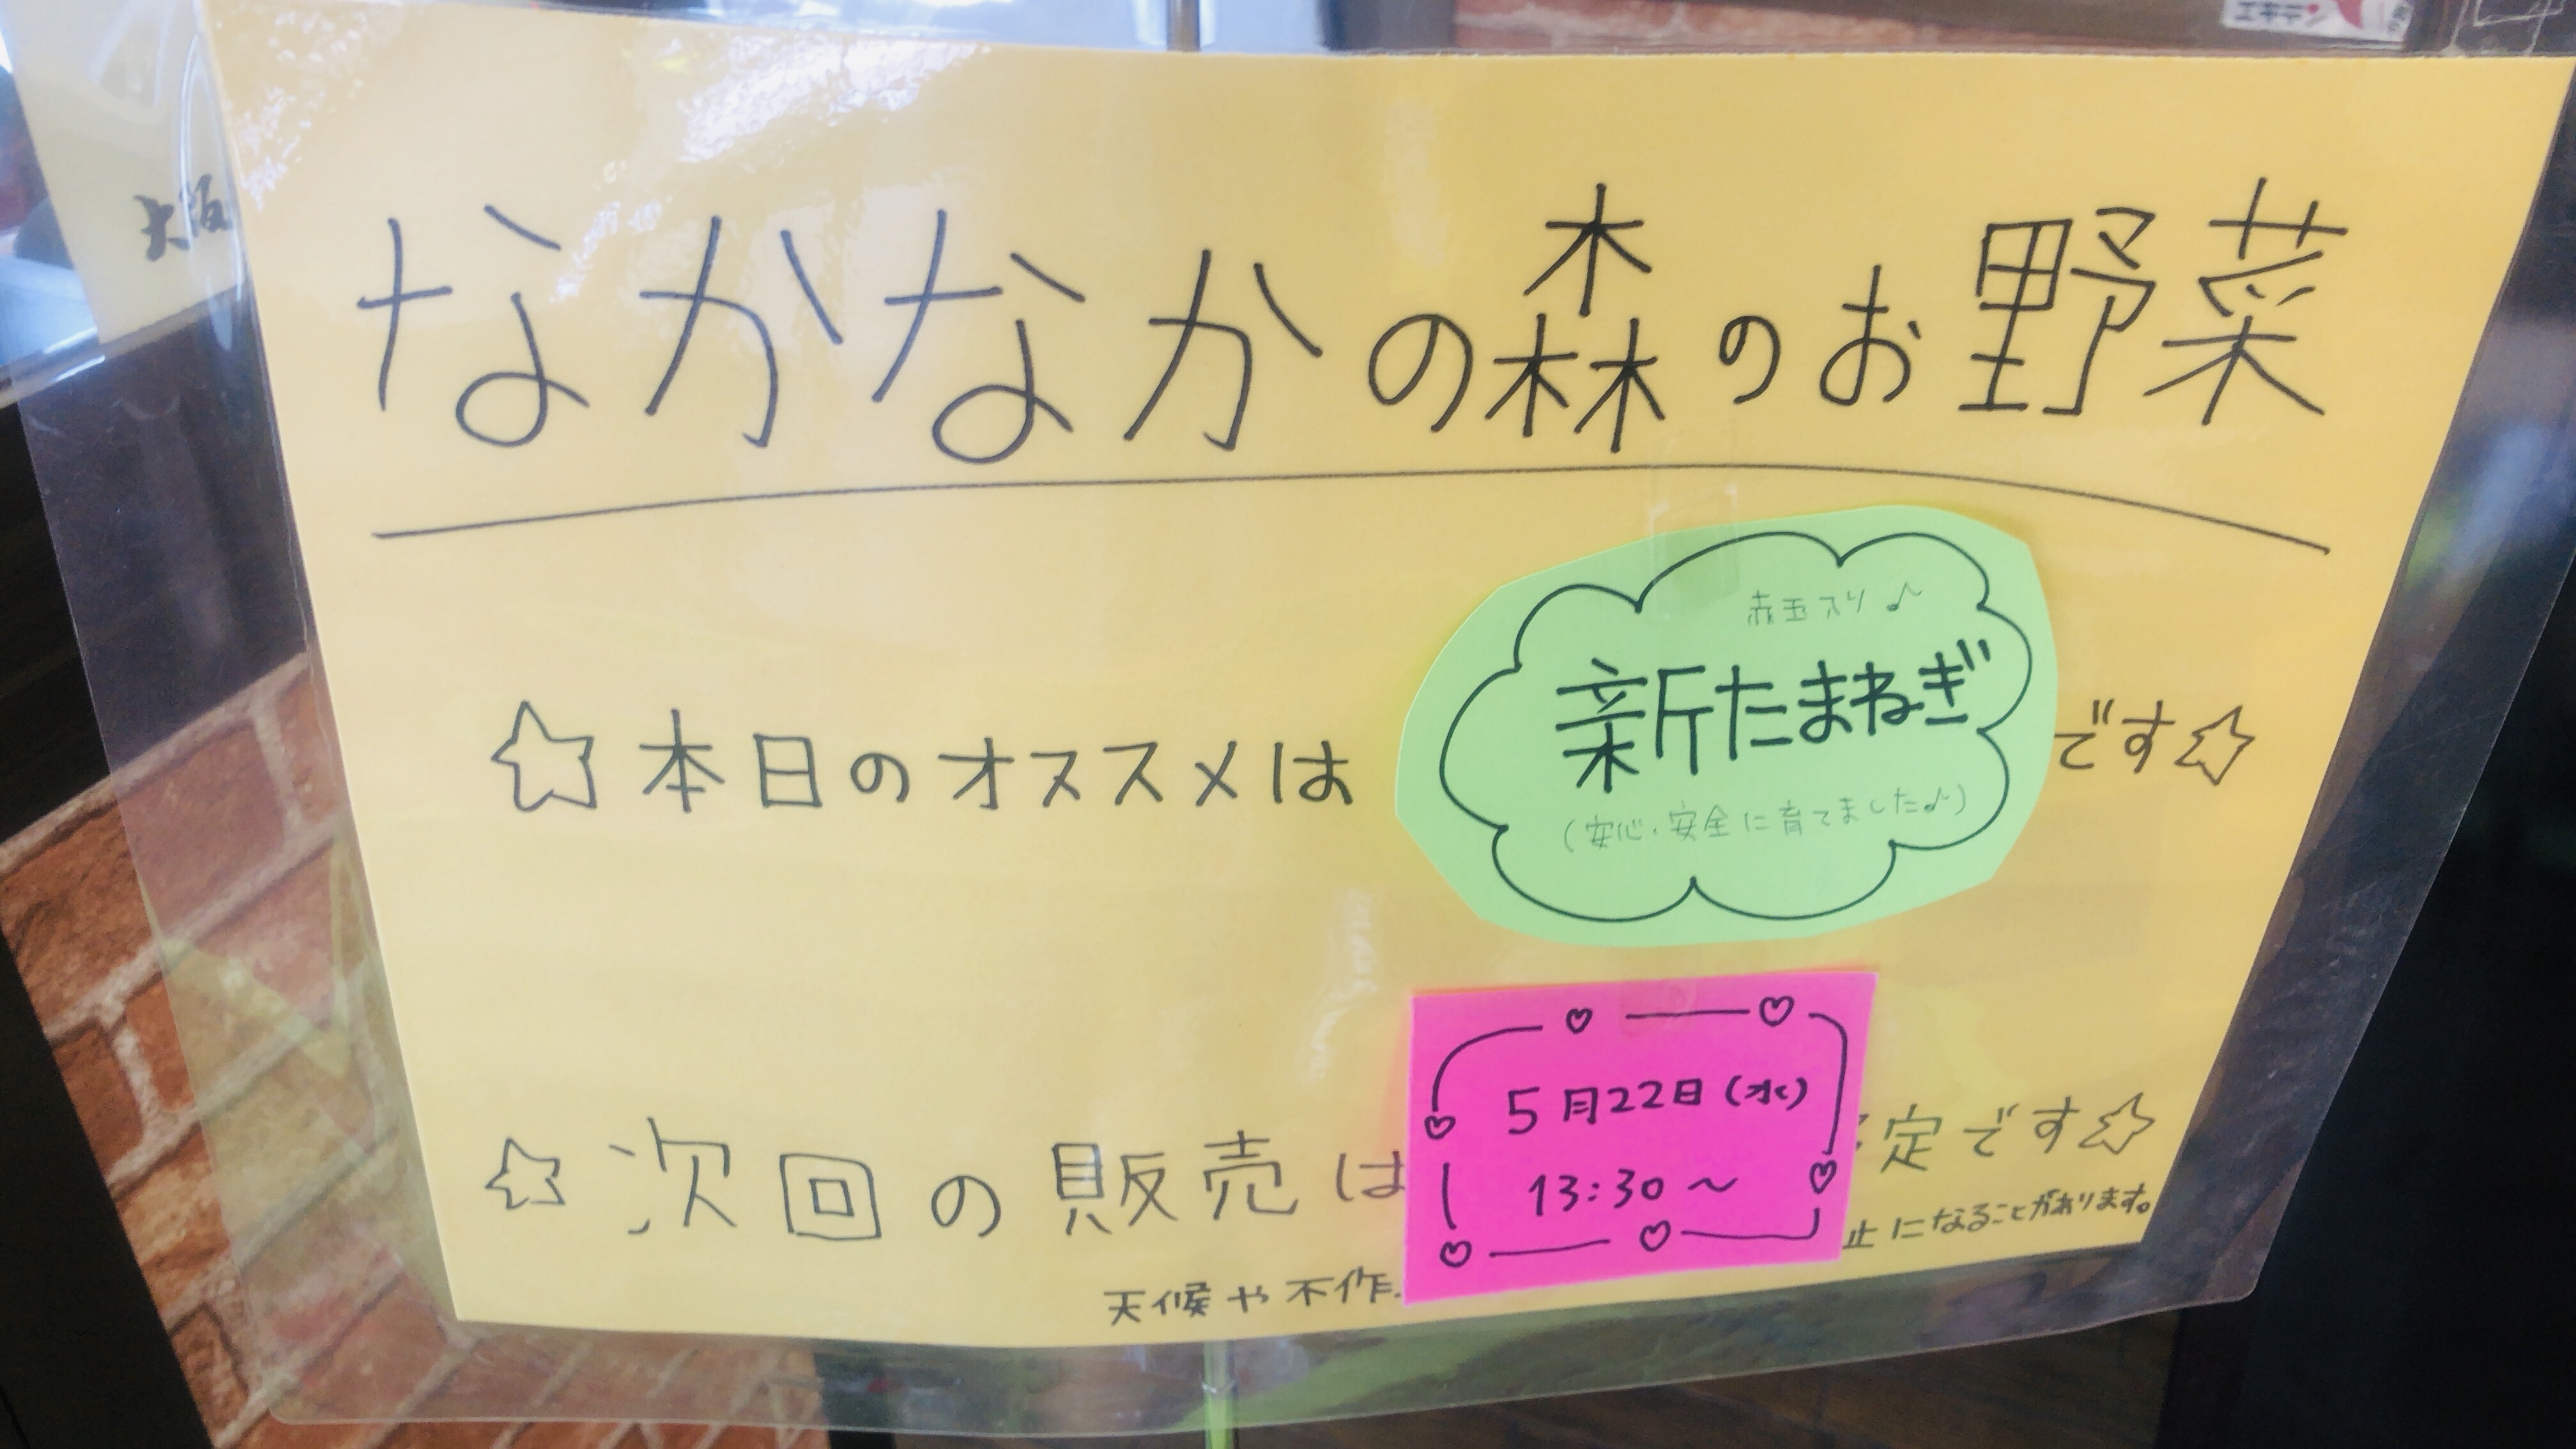 なかなかの森のお野菜
赤玉入り♪
☆本日のオススメは 新たまねぎ です☆
(安心・安全に育てました♪)
5月22日(水)
☆次回の販売は 13:30〜 定です☆
天候や不作 止になることがあります。
大阪
エキテン